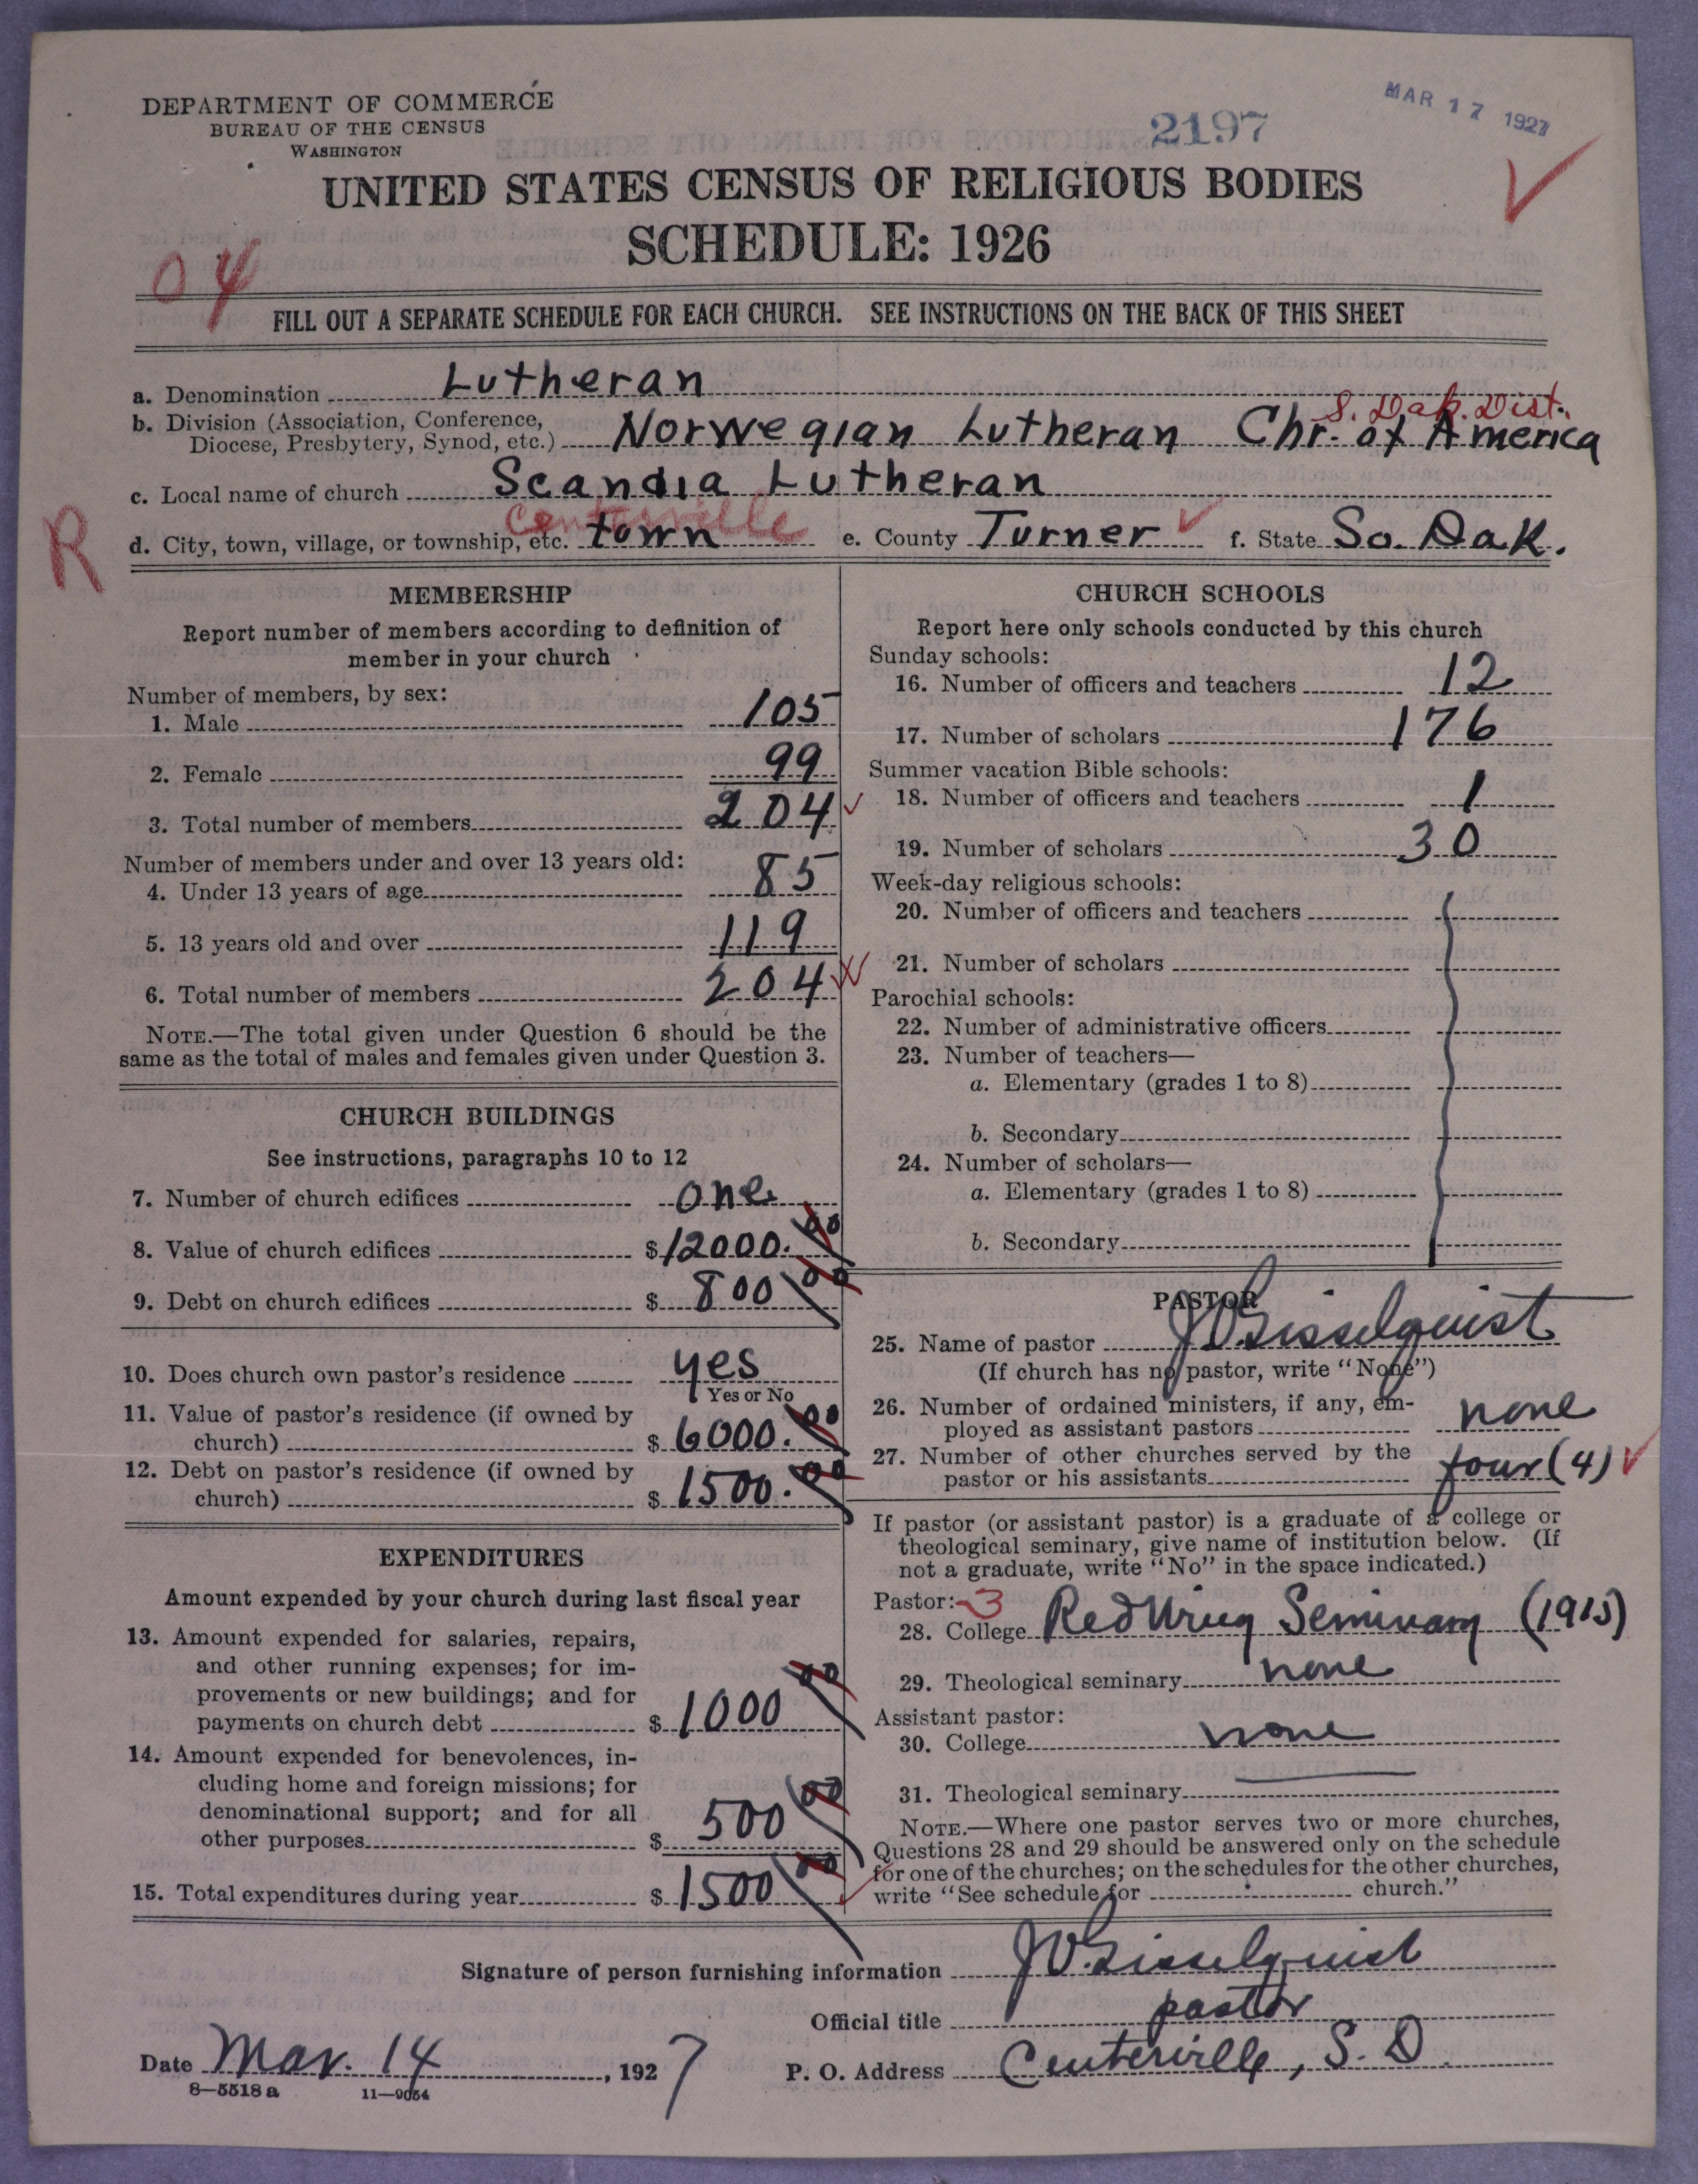 DEPARTMENT OF COMMERCE
BUREAU OF THE CENSUS
WASHINGTON
2197
MAR 17 1927
UNITED STATES CENSUS OF RELIGIOUS BODIES
SCHEDULE: 1926
04
FILL OUT A SEPARATE SCHEDULE FOR EACH CHURCH. SEE INSTRUCTIONS ON THE BACK OF THIS SHEET
a. Denomination Lutheran
S. Dak. Dist.
b. Division (Association, Conference,
Diocese, Presbytery, Synod, etc.) Norwegian Lutheran Chr. of America
c. Local name of church Scandia Lutheran
Centerville
R
d. City, town, village, or township, etc. town e. County Turner f. State So. Dak.
MEMBERSHIP
Report number of members according to definition of
member in your church
Number of members, by sex:
1. Male 105
2. Female 99
3. Total number of members 204
Number of members under and over 13 years old:
4. Under 13 years of age 85
5. 13 years old and over 119
6. Total number of members 204
NOTE.—The total given under Question 6 should be the
same as the total of males and females given under Question 3.
CHURCH BUILDINGS
See instructions, paragraphs 10 to 12
7. Number of church edifices one
8. Value of church edifices $12000.00
9. Debt on church edifices $ 800 00
10. Does church own pastor's residence yes
Yes or No
11. Value of pastor's residence (if owned by
church) $ 6000.00
12. Debt on pastor's residence (if owned by
church) $ 1500.00
EXPENDITURES
Amount expended by your church during last fiscal year
13. Amount expended for salaries, repairs,
and other running expenses; for im-
provements or new buildings; and for
payments on church debt $ 1000 00
14. Amount expended for benevolences, in-
cluding home and foreign missions; for
denominational support; and for all
other purposes $ 500 00
15. Total expenditures during year $ 1500 00
CHURCH SCHOOLS
Report here only schools conducted by this church
Sunday schools:
16. Number of officers and teachers 12
17. Number of scholars 176
Summer vacation Bible schools:
18. Number of officers and teachers 1
19. Number of scholars 30
Week-day religious schools:
20. Number of officers and teachers
21. Number of scholars
Parochial schools:
22. Number of administrative officers
23. Number of teachers—
a. Elementary (grades 1 to 8)
b. Secondary
24. Number of scholars—
a. Elementary (grades 1 to 8)
b. Secondary
PASTOR
25. Name of pastor J V Gisselquist
(If church has no pastor, write "None")
26. Number of ordained ministers, if any, em-
ployed as assistant pastors none
27. Number of other churches served by the
pastor or his assistants four (4)
If pastor (or assistant pastor) is a graduate of a college or
theological seminary, give name of institution below. (If
not a graduate, write "No" in the space indicated.)
Pastor: 3
28. College Red Wing Seminary (1915)
29. Theological seminary none
Assistant pastor:
30. College none
31. Theological seminary
NOTE.—Where one pastor serves two or more churches,
Questions 28 and 29 should be answered only on the schedule
for one of the churches; on the schedules for the other churches,
write "See schedule for church."
Signature of person furnishing information J V. Gisselquist
Official title pastor
Date Mar. 14, 1927 P. O. Address Centerville, S. D.
8—5518 a 11—9054